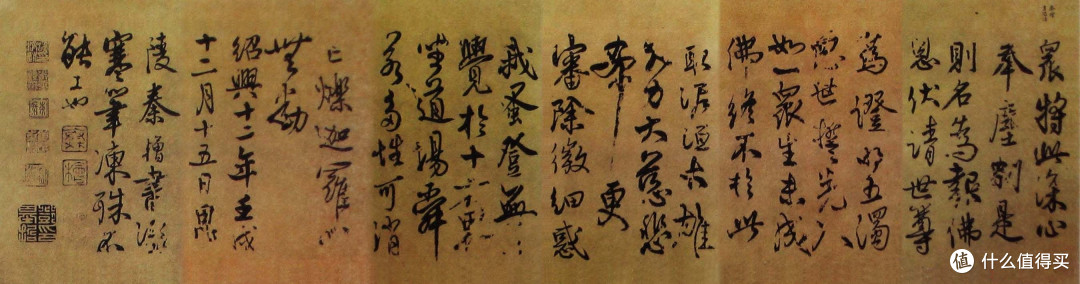 眾將此深心
奉塵刹是
則名為報佛
恩伏請世尊
為證明五濁
惡世誓先入
如一眾生未成
佛終不於此
取泥洹大雄
大力大慈悲
希更
審除微細惑
我蚤登無上
覺於十方界
坐道場舜
若多性可消
亡爍迦羅心
無動
紹興十二年壬戌
十二月十五日
陵秦檜書
寒筆凍殊不
能工也
值 什么值得买